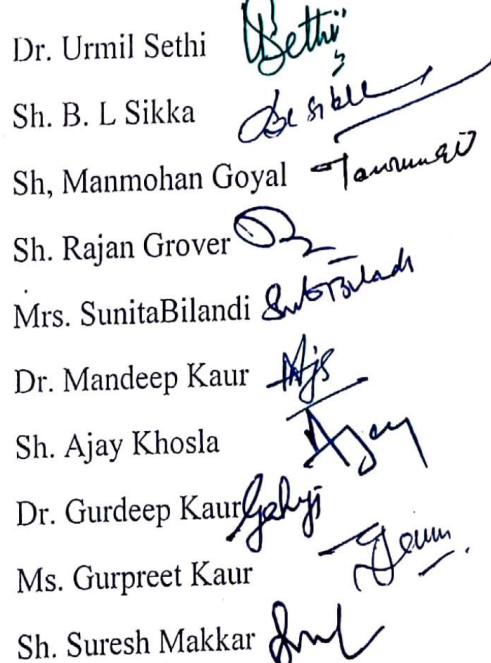 Dr. Urmil Sethi Sethi
Sh. B. L Sikka
Sh, Manmohan Goyal
Sh. Rajan Grover
Mrs. SunitaBilandi
Dr. Mandeep Kaur
Sh. Ajay Khosla Ajay
Dr. Gurdeep Kaur
Ms. Gurpreet Kaur
Sh. Suresh Makkar